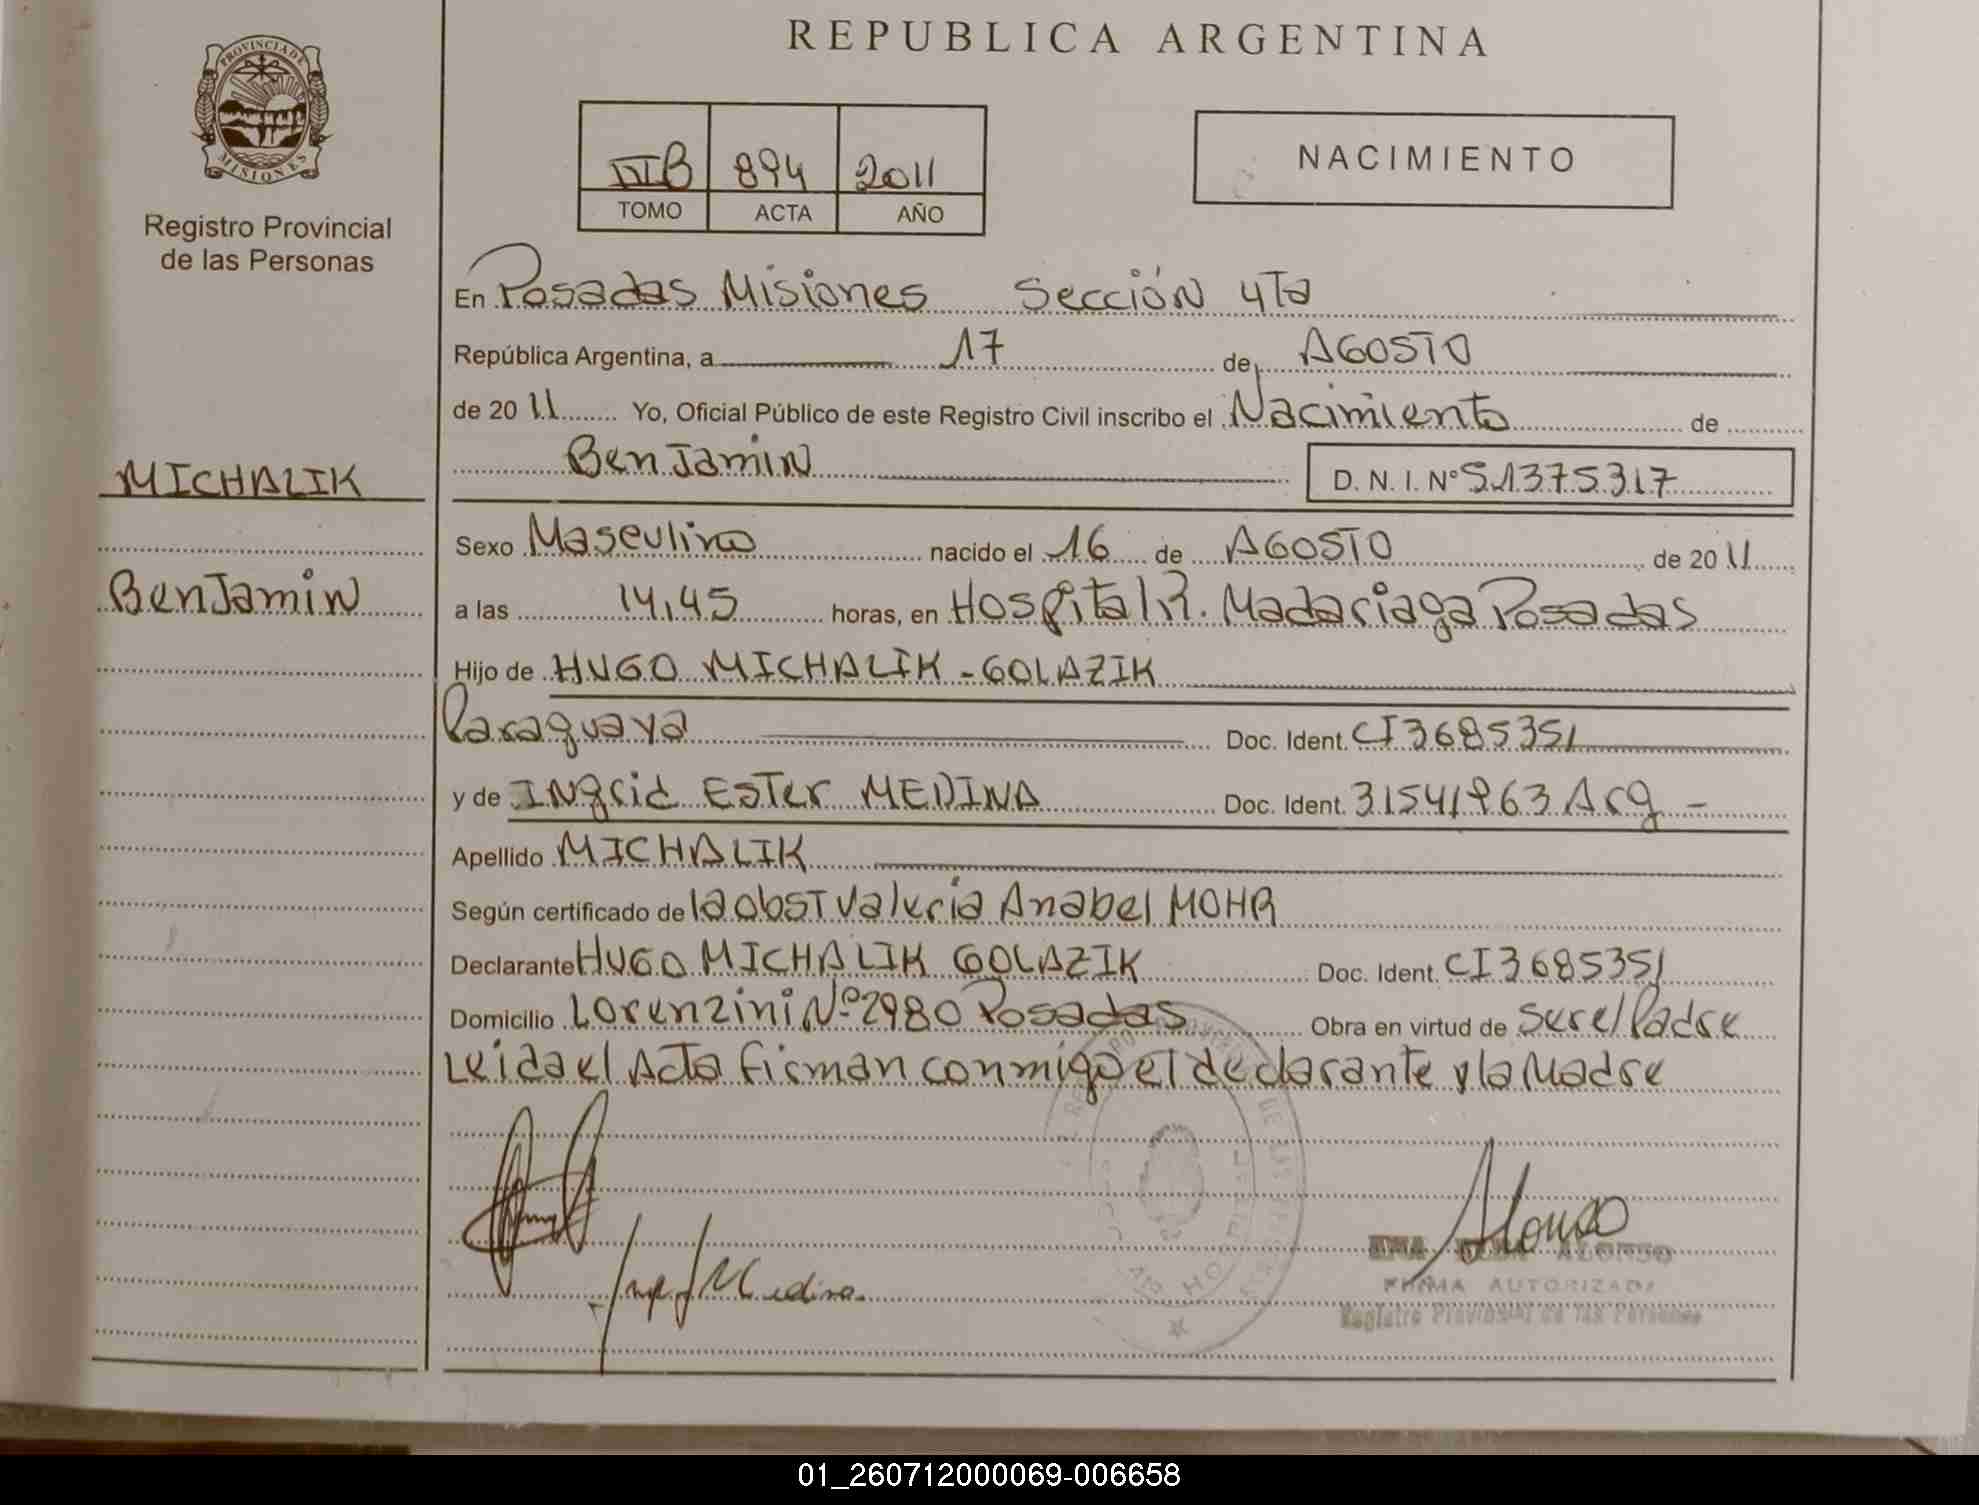 REPUBLICA ARGENTINA
PROVINCIA DE
MISIONES
Registro Provincial
de las Personas
IIIB 894 2011
TOMO ACTA AÑO
NACIMIENTO
En Posadas Misiones Sección 4Ta
República Argentina, a 17 de AGOSTO
de 2011 Yo, Oficial Público de este Registro Civil inscribo el Nacimiento de
BenJamin D. N. I. Nº 51375317
MICHALIK
BenJamin
Sexo Masculino nacido el 16 de AGOSTO de 2011
a las 14,45 horas, en Hospital R. Madariaga Posadas
Hijo de HUGO MICHALIK - GOLAZIK
Paraguaya Doc. Ident. CI 3685351
y de INgrid ESTer MEDINA Doc. Ident. 31541963 Arg -
Apellido MICHALIK
Según certificado de la obsT Valeria Anabel MOHR
Declarante HUGO MICHALIK GOLAZIK Doc. Ident. CI 3685351
Domicilio Lorenzini Nº 2980 Posadas Obra en virtud de ser el Padre
Leida el Acta firman conmigo el declarante y la Madre
Medina
Alonso
ALONSO
FIRMA AUTORIZADA
Registro Provincial de las Personas
01_260712000069-006658